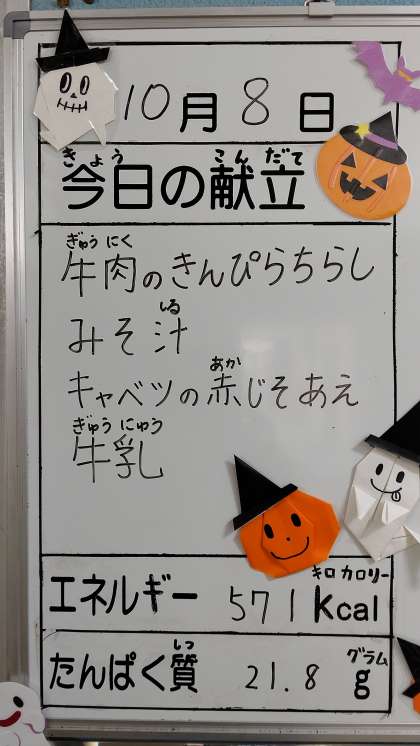 10月8日
きょう こんだて
今日の献立
ぎゅうにく
牛肉のきんぴらちらし
しる
みそ汁
あか
キャベツの赤じそあえ
ぎゅうにゅう
牛乳
キロカロリー
エネルギー 571 kcal
しつ グラム
たんぱく質 21.8 g